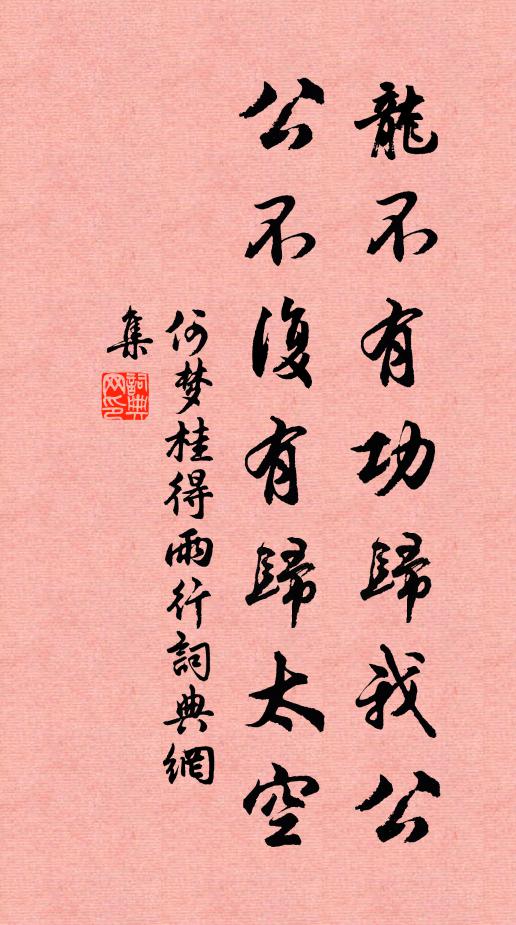 龍不有功歸我公
公不復有歸太空
何梦桂得雨行詞典網
集
詞典
网印